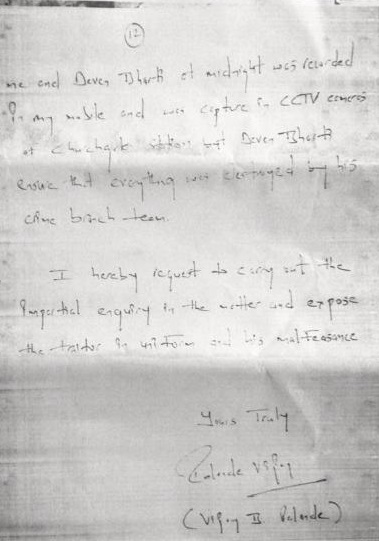 12
me and Deven Bharti at midnight was recorded
in my mobile and was capture in CCTV cameras
at station but Deven Bharti
ensure that everything was destroyed by his
crime branch team.
I hereby request to carry out the
impartial enquiry in the matter and expose
the traitor in uniform and his malfeasance
Yours Truly
Palande Vijay
(Vijay Palande)